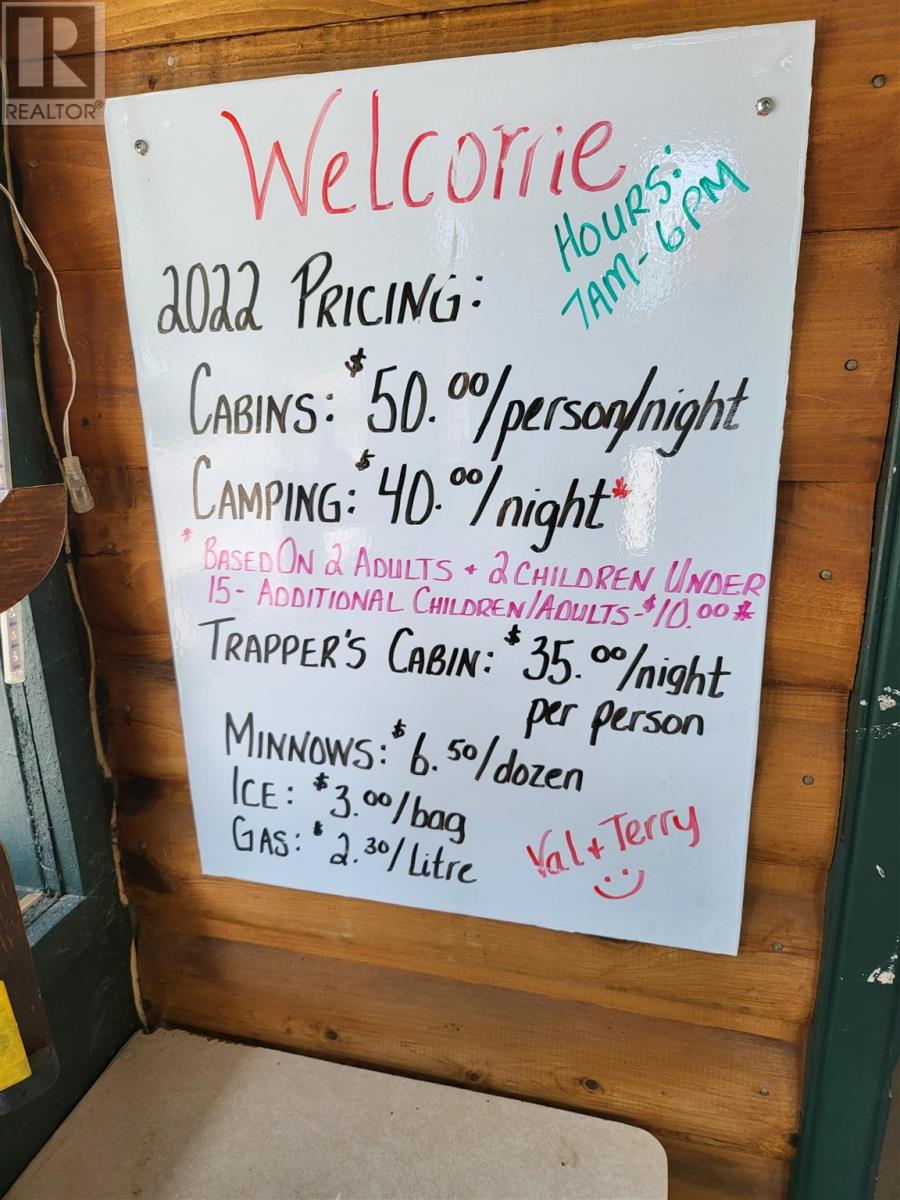 REALTOR®
Welcome
HOURS:
7AM-6PM
2022 PRICING:
CABINS: $50.00/person/night
CAMPING: $40.00/night*
* BASED ON 2 ADULTS + 2 CHILDREN UNDER
15- ADDITIONAL CHILDREN/ADULTS-$10.00*
TRAPPER'S CABIN: $35.00/night
per person
MINNOWS: $6.50/dozen
ICE: $3.00/bag
GAS: $2.30/Litre
Val + Terry